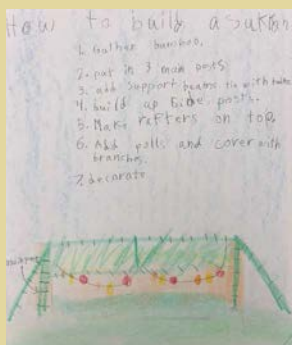 How to build a sukkah
1. Gather bamboo.
2. put in 3 main posts
3. add support beams tie with twine
4. build up side posts.
5. Make refters on top
6. Add walls and cover with
branches.
7. decorate